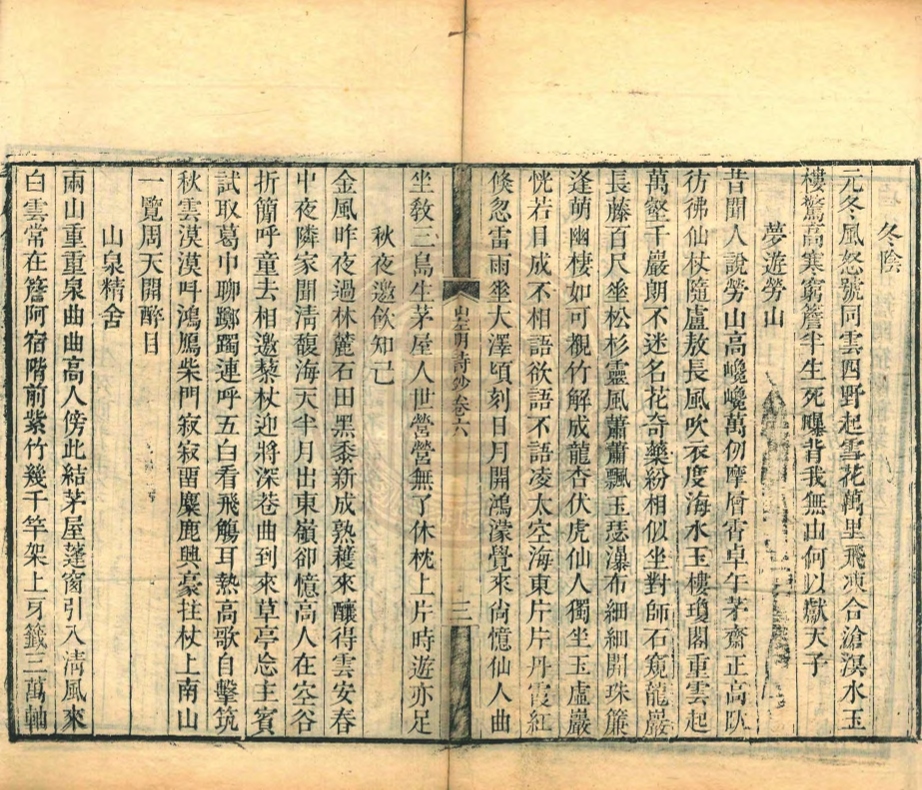 冬陰
元冬風怒號同雲四野起雪花萬里飛凍合滄溟水玉
樓驚高寒窮簷半生死曝背我無由何以獻天子
夢遊勞山
昔聞人說勞山高巉巉萬仞摩層霄卓午茅齋正高臥
彷彿仙杖隨盧敖長風吹衣度海水玉樓瓊閣重雲起
萬壑千巖朗不迷名花奇藥紛相似坐對師石窺龍巖
長藤百尺垂松杉靈風蕭蕭飄玉瑟瀑布細細開珠簾
逢萌幽棲如可覩竹解成龍杏伏虎仙人獨坐玉虛巖
恍若目成不相語欲語不語凌太空海東片片丹霞紅
倏忽雷雨垂大澤頃刻日月開鴻濛覺來尙憶仙人曲
山左明詩鈔卷六
三
坐敎三島生茅屋人世營營無了休枕上片時遊亦足
秋夜邀飲知己
金風昨夜過林麓石田黑黍新成熟穫來釀得雲安春
中夜隣家聞淸馥海天半月出東嶺卻憶高人在空谷
折簡呼童去相邀藜杖迎將深巷曲到來草亭忘主賓
試取葛巾聊躑躅連呼五白看飛觴耳熱高歌自擊筑
秋雲漠漠叫鴻鴈柴門寂寂留麋鹿興豪拄杖上南山
一覽周天開醉目
山泉精舍
兩山重重泉曲曲高人傍此結茅屋蓬窗引入淸風來
白雲常在簷阿宿階前紫竹幾千竿架上牙籤三萬軸